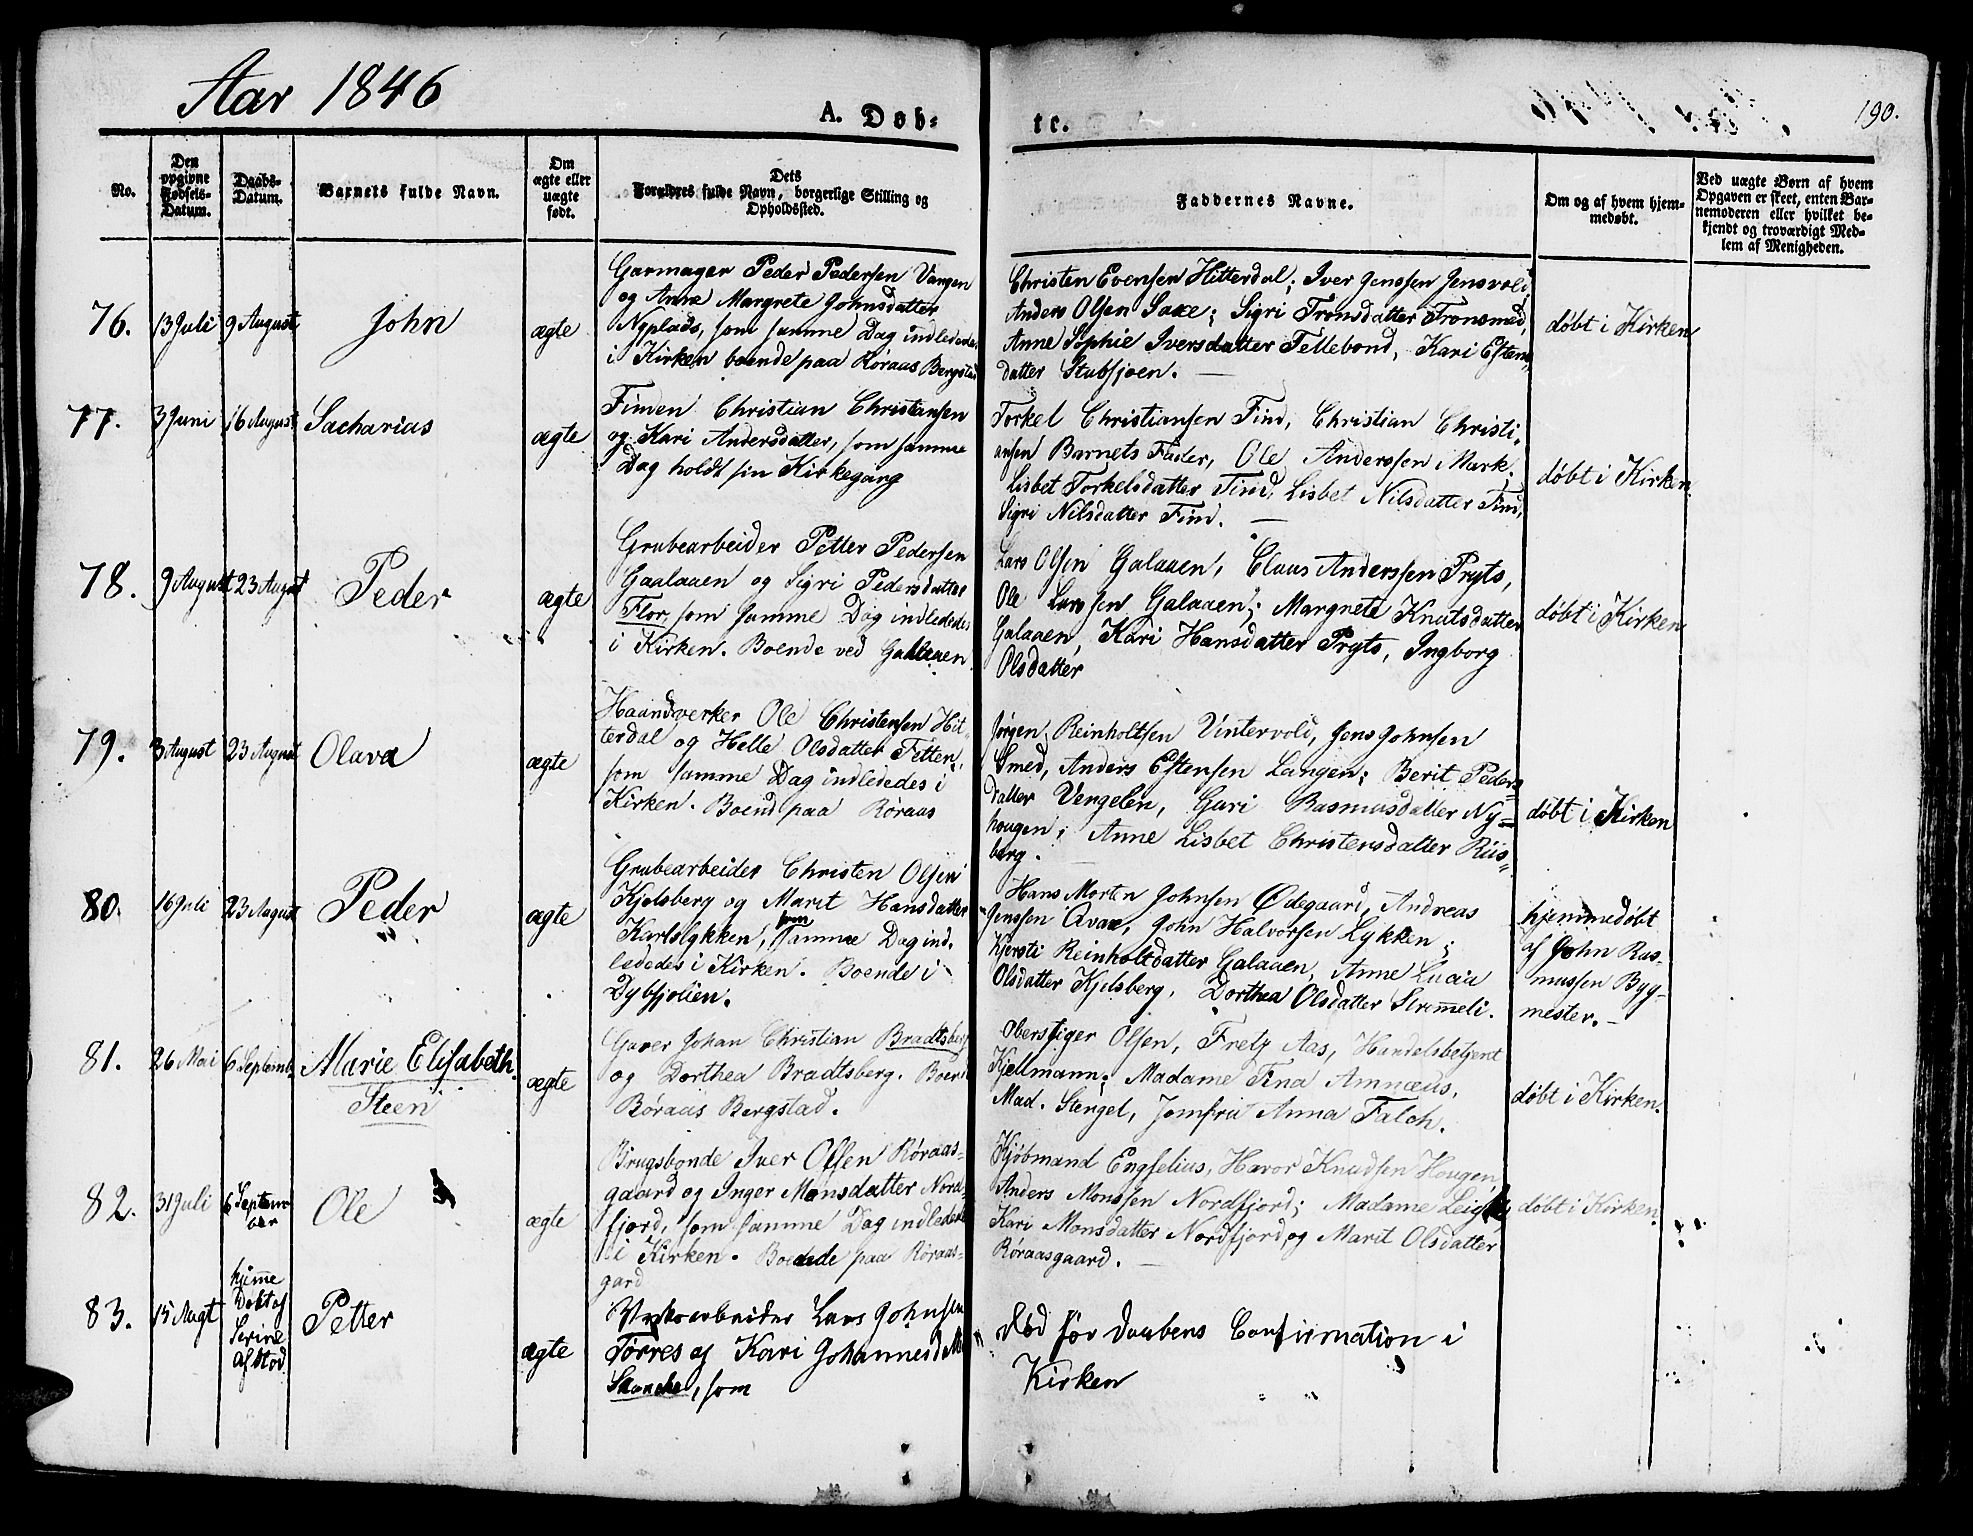 Aar 1846
A. Døb-
te.
190.
No.
Den
opgivne
Fødsels-
Datum.
Daabs-
Datum.
Barnets fulde Navn.
Om
ægte eller
uægte
født.
Dets
Forældres fulde Navn, borgerlige Stilling og
Opholdssted.
Faddernes Navne.
Om og af hvem hjem-
medøbt.
Ved uægte Børn af hvem
Opgaven er skeet, enten Bar-
nemoderen eller hvilket be-
kjendt og troværdigt Med-
lem af Menigheden.
76.
13 Juli
9 August
John
ægte
Garmager Peder Pedersen Vangen
og Anne Margrete Johnsdatter
Nyplads, som samme Dag indledede
i Kirken boende paa Røraas Bergstad
Christen Evensen Hitterdal; Iver Jenssen Jensvold
Anders Olsen Saxe; Sigri Tronsdatter Tronsmed,
Anne Sophie Iversdatter Tellebond, Kari Estens-
datter Stubsjoen. —
døbt i Kirken
77.
3 Juni
16 August
Sacharias
ægte
Finden Christian Christiansen
og Kari Andersdatter, som samme
Dag holdt sin Kirkegang
Torkel Christiansen Find, Christian Christi-
ansen Barnets Fader, Ole Anderssen Mark,
Lisbet Torkelsdatter Find, Lisbet Nilsdatter Find,
Sigri Nilsdatter Find. —
døbt i Kirken.
78.
9 August
23 August
Peder
ægte
Grubearbeider Petter Pedersen
Gaalaaen og Sigri Pedersdatter
Flor, som samme Dag indledede
i Kirken. Boende ved Galaaen
Lars Olsen Galaaen, Claus Anderssen Pryts,
Ole Larssen Galaaen; Margrete Knutsdatter
Galaaen, Kari Hansdatter Pryts, Ingborg
Olsdatter
døbt i Kirken
79.
3 August
23 August
Olava
ægte
Haandverker Ole Christensen Hit-
terdal og Helle Olsdatter Fetten,
som samme Dag indledes i
Kirken. Boend paa Røraas
Jørgen Reinholtsen Vintervold, Jens Johnsen
Smed, Anders Estensen Langen; Berit Peders-
datter Vengelen, Guri Rasmusdatter Ny-
hougen; Anne Lisbet Christensdatter Riis-
berg. —
døbt i Kirken
80.
16 Juli
23 August
Peder
ægte
Grubearbeider Christen Olsen
Kjelsberg og Marit Hansdatter
Karlslykken, som samme Dag ind-
lededes i Kirken. Boende i
Dybsjolien.
Hans Morten Johnsen Ødegaard, Andreas
Jenssen Avaa, John Halvorsen Lykken;
Kjersti Reinholtdatter Galaaen, Anne Lucia
Olsdatter Kjelsberg, Dorthea Olsdatter Stremeli.
hjemmedøbt
af John Ras-
mussen Byg-
mester. —
81.
26 Mai
6 Septemb.
Marie Elisabeth
Steen
ægte
Garver Johan Christian Bradtsberg
og Dorthea Bradtsberg. Boend
Røraas Bergstad.
Oberstiger Olsen, Fretz Aas, Handelsbetjent
Kjellmann; Madame Tina Amnæus,
Mad. Stengel, Jomfru Anna Falch.
døbt i Kirken.
82.
31 Juli
6 Septem-
ber
Ole
ægte
Brugsbonde Iver Olsen Røraas-
gaard og Inger Monsdatter Nord-
fjord, som samme Dag indledede
i Kirken. Boende paa Røraas-
gard
Kjøbmand Engselius, Havor Knudsen Hougen,
Anders Monssen Nordfjord; Madame
Kari Monsdatter Nordfjord, og Marit Olsdatter
Røraasgaard. —
døbt i Kirken.
83.
15 Augt
hjeme
Døbt af
Serine
Afstod
Petter
ægte
Lars Johnsen
Torres og Kari Johannesd
Skancke, som
død før Daabens Confirmation i
Kirken